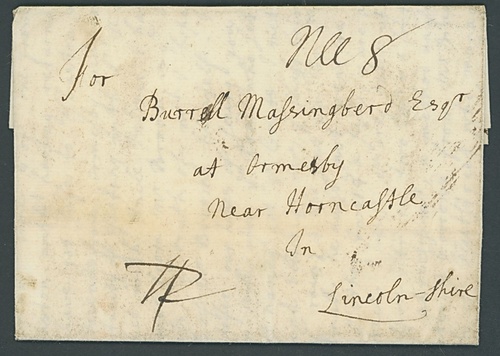 For
Burrell Massingberd Esqr
at Ormesby
Near Horncastle
In
Lincoln-shire